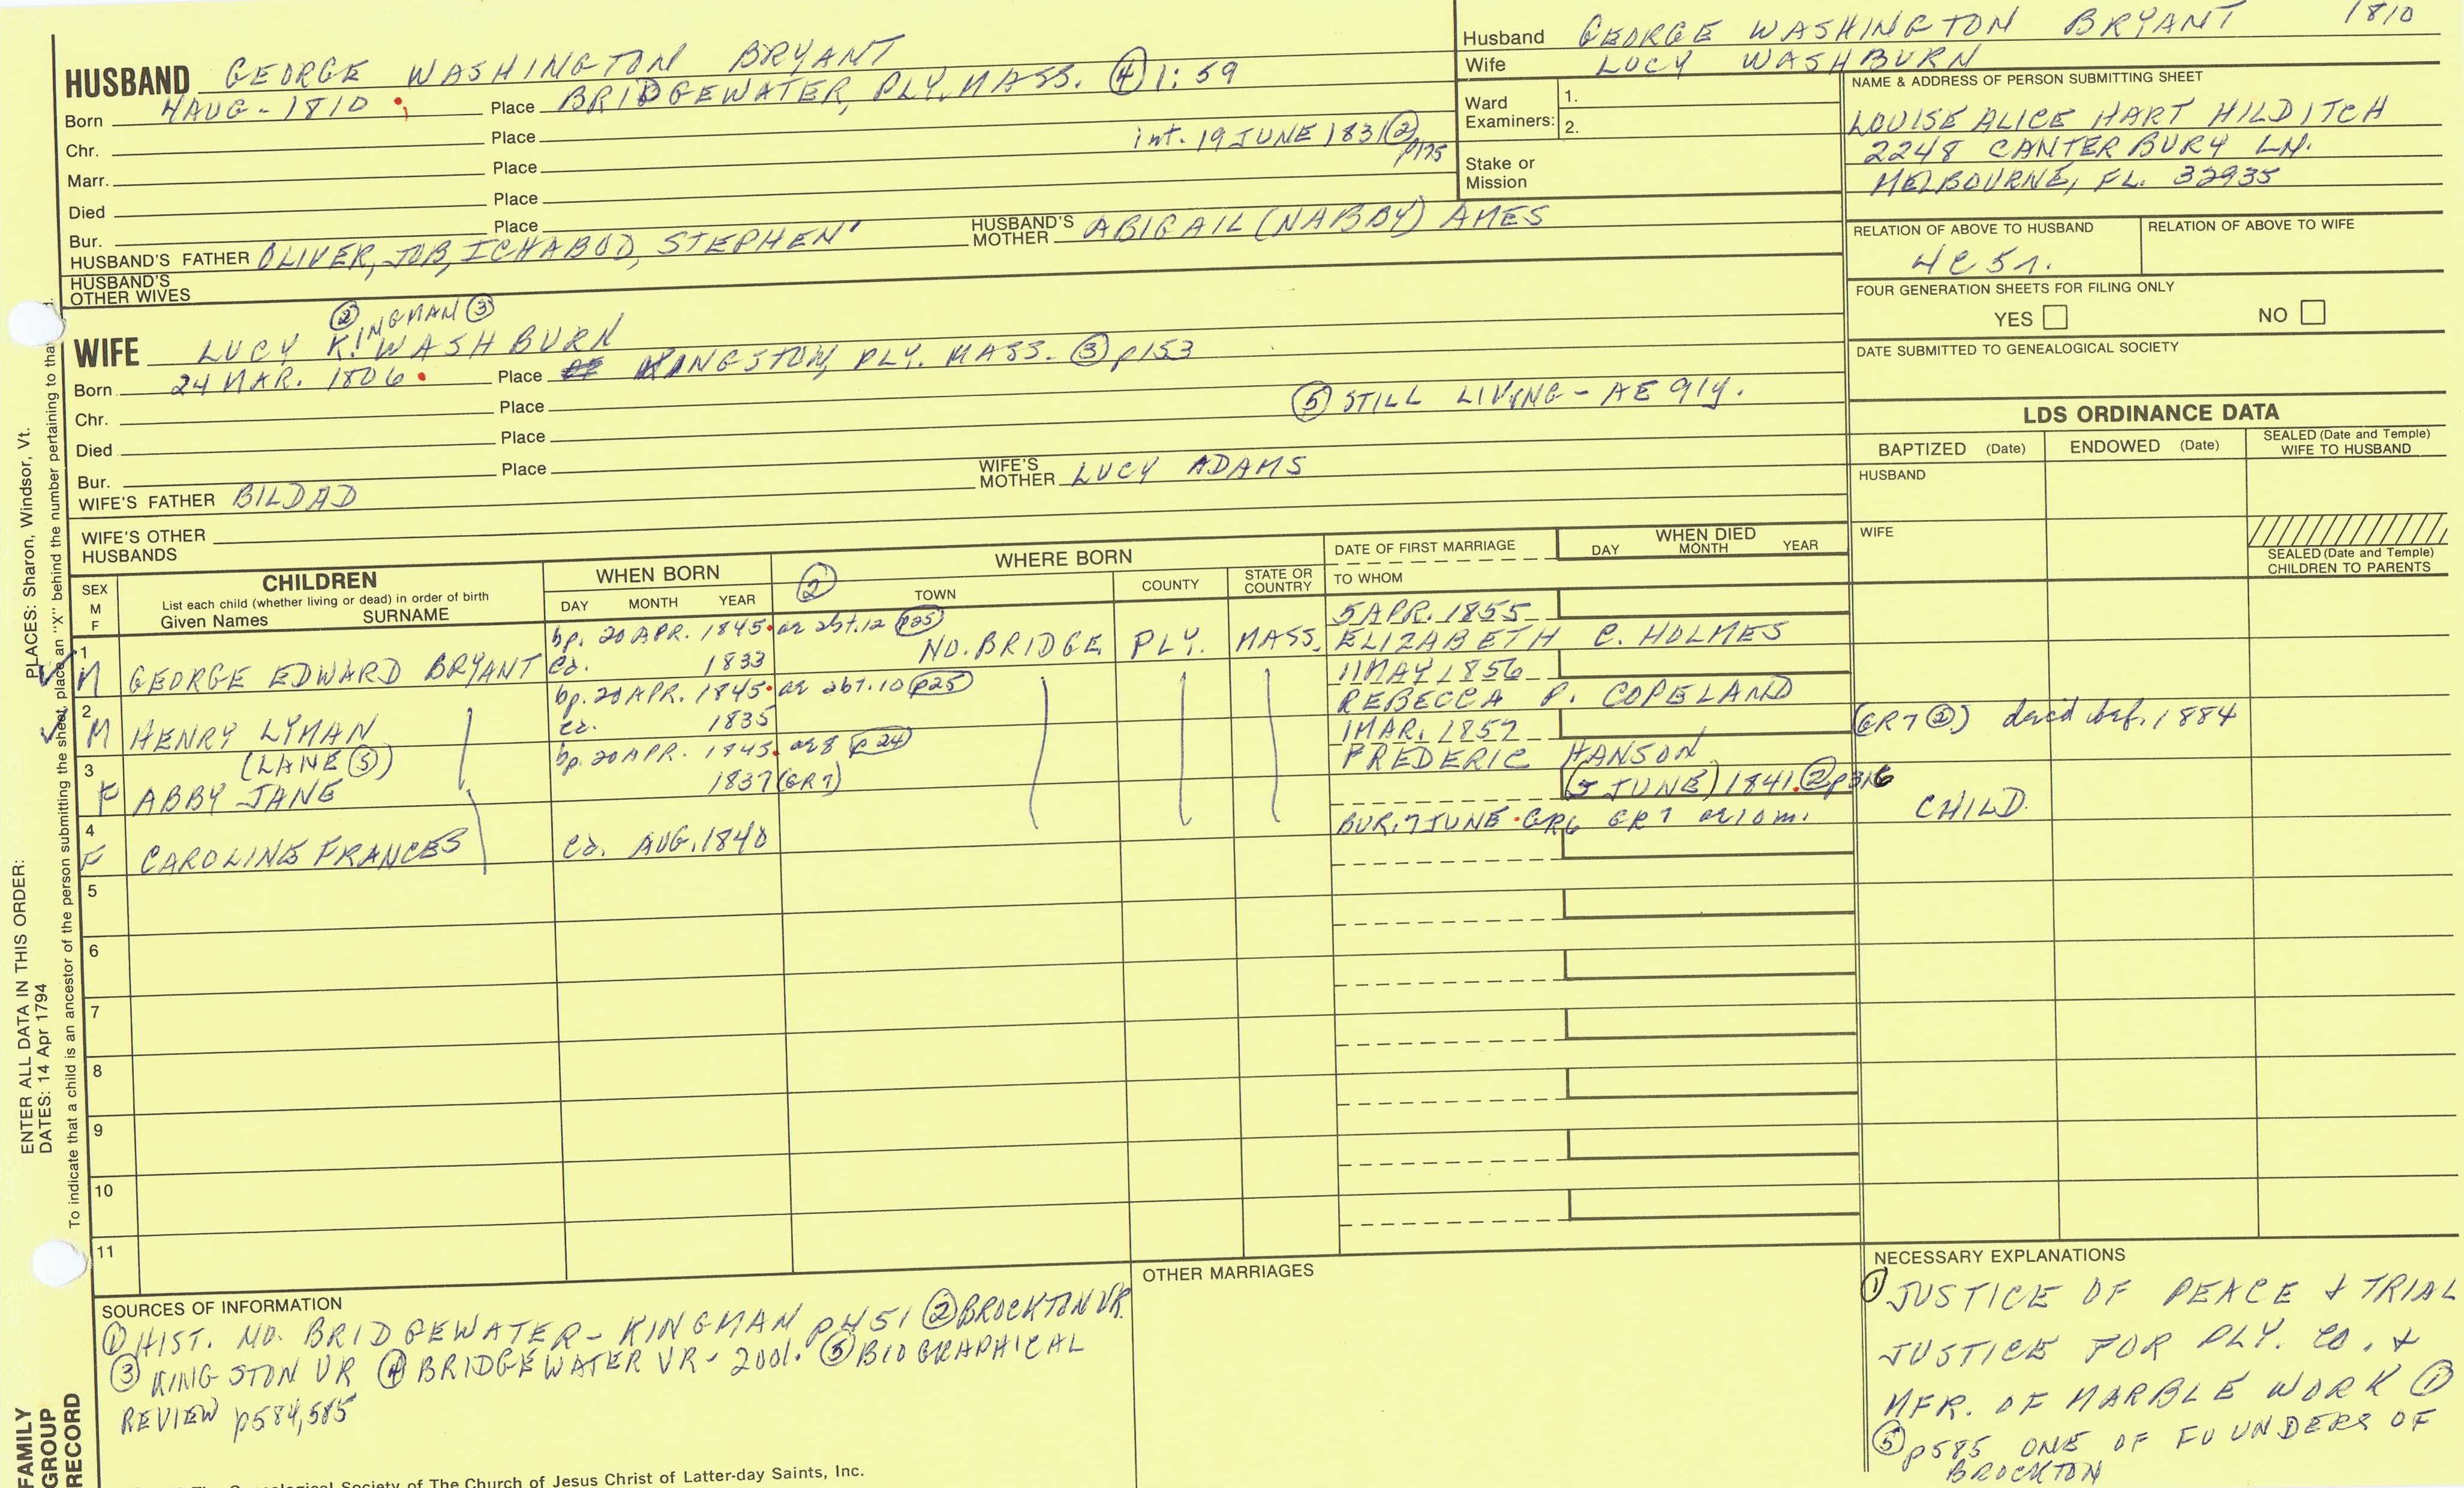 HUSBAND GEORGE WASHINGTON BRYANT
Born 4 AUG - 1810 Place BRIDGEWATER, PLY. MASS. ④ 1:59
Chr. Place
int. 19 JUNE 1831 ② p175
Marr. Place
Died Place
Bur. Place
HUSBAND'S FATHER OLIVER, JOB, ICHABOD, STEPHEN' HUSBAND'S MOTHER ABIGAIL (NABBY) AMES
HUSBAND'S OTHER WIVES
② KINGMAN ③
WIFE LUCY K. WASHBURN
Born 24 MAR. 1806. Place KINGSTON, PLY. MASS. ③ p153
Chr. Place
⑤ STILL LIVING - AE 91y.
Died Place
Bur. Place
WIFE'S FATHER BILDAD WIFE'S MOTHER LUCY ADAMS
WIFE'S OTHER HUSBANDS
Husband GEORGE WASHINGTON BRYANT 1810
Wife LUCY WASHBURN
Ward Examiners: 1.
2.
Stake or Mission
NAME & ADDRESS OF PERSON SUBMITTING SHEET
LOUISE ALICE HART HILDITCH
2248 CANTERBURY LN.
MELBOURNE, FL. 32935
RELATION OF ABOVE TO HUSBAND RELATION OF ABOVE TO WIFE
4C5r.
FOUR GENERATION SHEETS FOR FILING ONLY
YES NO
DATE SUBMITTED TO GENEALOGICAL SOCIETY
LDS ORDINANCE DATA
BAPTIZED (Date) ENDOWED (Date) SEALED (Date and Temple) WIFE TO HUSBAND
HUSBAND
WIFE
SEALED (Date and Temple) CHILDREN TO PARENTS
SEX M F
CHILDREN
List each child (whether living or dead) in order of birth
Given Names SURNAME
WHEN BORN
DAY MONTH YEAR
② WHERE BORN
TOWN COUNTY STATE OR COUNTRY
DATE OF FIRST MARRIAGE
TO WHOM
WHEN DIED
DAY MONTH YEAR
bp. 20 APR. 1845. ae abt. 12 p25 5 APR. 1855
1 M GEORGE EDWARD BRYANT ca. 1833 NO. BRIDGE PLY. MASS. ELIZABETH C. HOLMES
bp. 20 APR. 1845. ae abt. 10 p25 11 MAY 1856
2 M HENRY LYMAN ca. 1835 REBECCA P. COPELAND
(LANE ⑤) bp. 20 APR. 1845. ae 8 p24 1 MAR. 1857 (GR7 ②) dec'd bef. 1884
3 F ABBY JANE 1837 (GR7) FREDERIC HANSON
(5 JUNE) 1841. ② p316
4 F CAROLINE FRANCES ca. AUG. 1840 BUR. 7 JUNE. GR6 GR7 ae 10 m. CHILD
5
6
7
8
9
10
11
SOURCES OF INFORMATION
① HIST. NO. BRIDGEWATER - KINGMAN p451 ② BROCKTON VR.
③ KINGSTON VR ④ BRIDGEWATER VR - 2001. ⑤ BIOGRAPHICAL
REVIEW p584,585
OTHER MARRIAGES
NECESSARY EXPLANATIONS
① JUSTICE OF PEACE & TRIAL
JUSTICE FOR PLY. CO. &
MFR. OF MARBLE WORK ①
⑤ p585 ONE OF FOUNDERS OF
BROCKTON
Society of The Church of Jesus Christ of Latter-day Saints, Inc.
FAMILY GROUP RECORD
ENTER ALL DATA IN THIS ORDER:
DATES: 14 Apr 1794 PLACES: Sharon, Windsor, Vt.
To indicate that a child is an ancestor of the person submitting the sheet, place an "X" behind the number pertaining to that